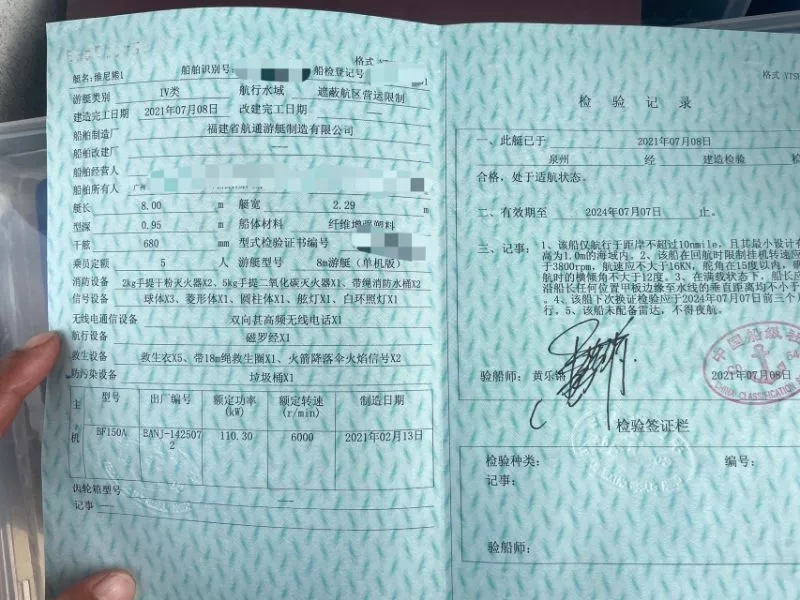 格式
艇名:维尼熊1
船舶识别号:
船检登记号
游艇类别 IV类 航行水域 遮蔽航区营运限制
建造完工日期 2021年07月08日 改建完工日期 —
船舶制造厂 福建省航通游艇制造有限公司
船舶改建厂 —
船舶经营人
船舶所有人 广州
艇长 8.00 m 艇宽 2.29 m
型深 0.95 m 船体材料 纤维增强塑料
干舷 680 mm 型式检验证书编号
乘员定额 5 人 游艇型号 8m游艇(单机版)
消防设备 2kg手提干粉灭火器X2、5kg手提二氧化碳灭火器X1、带绳消防水桶X2
信号设备 球体X3、菱形体X1、圆柱体X1、舷灯X1、白环照灯X1
无线电通信设备 双向甚高频无线电话X1
航行设备 磁罗经X1
救生设备 救生衣X5、带18m绳救生圈X1、火箭降落伞火焰信号X2
防污染设备 垃圾桶X1
主机
型号 出厂编号 额定功率(kW) 额定转速(r/min) 制造日期
BF150A BANJ-1425072 110.30 6000 2021年02月13日
齿轮箱型号 —
记事 —
格式 YTS
检验记录
一、此艇已于 2021年07月08日
泉州 经 建造检验
合格,处于适航状态。
二、有效期至 2024年07月07日 止。
三、记事: 1、该船仅航行于距岸不超过10nmile,且其最小设计
高为1.0m的海域内。2、该船在回航时限制挂机转速应
于3800rpm,航速应不大于16KN,舵角在15度以内,
航时的横倾角不大于12度。3、在满载状态下,船长
沿船长任何位置甲板边缘至水线的垂直距离均不小于
。4、该船下次换证检验应于2024年07月07日前三个月
行。5、该船未配备雷达,不得夜航。
验船师: 黄乐锵
中国船级社
2021年07月08日
CHINA CLASSIFICATION
检验签证栏
检验种类: 编号:
记事:
验船师: